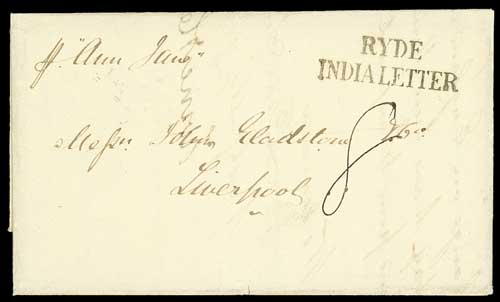 RYDE
INDIA LETTER
"Ann
Messrs John Gladstone & Co
8
Liverpool